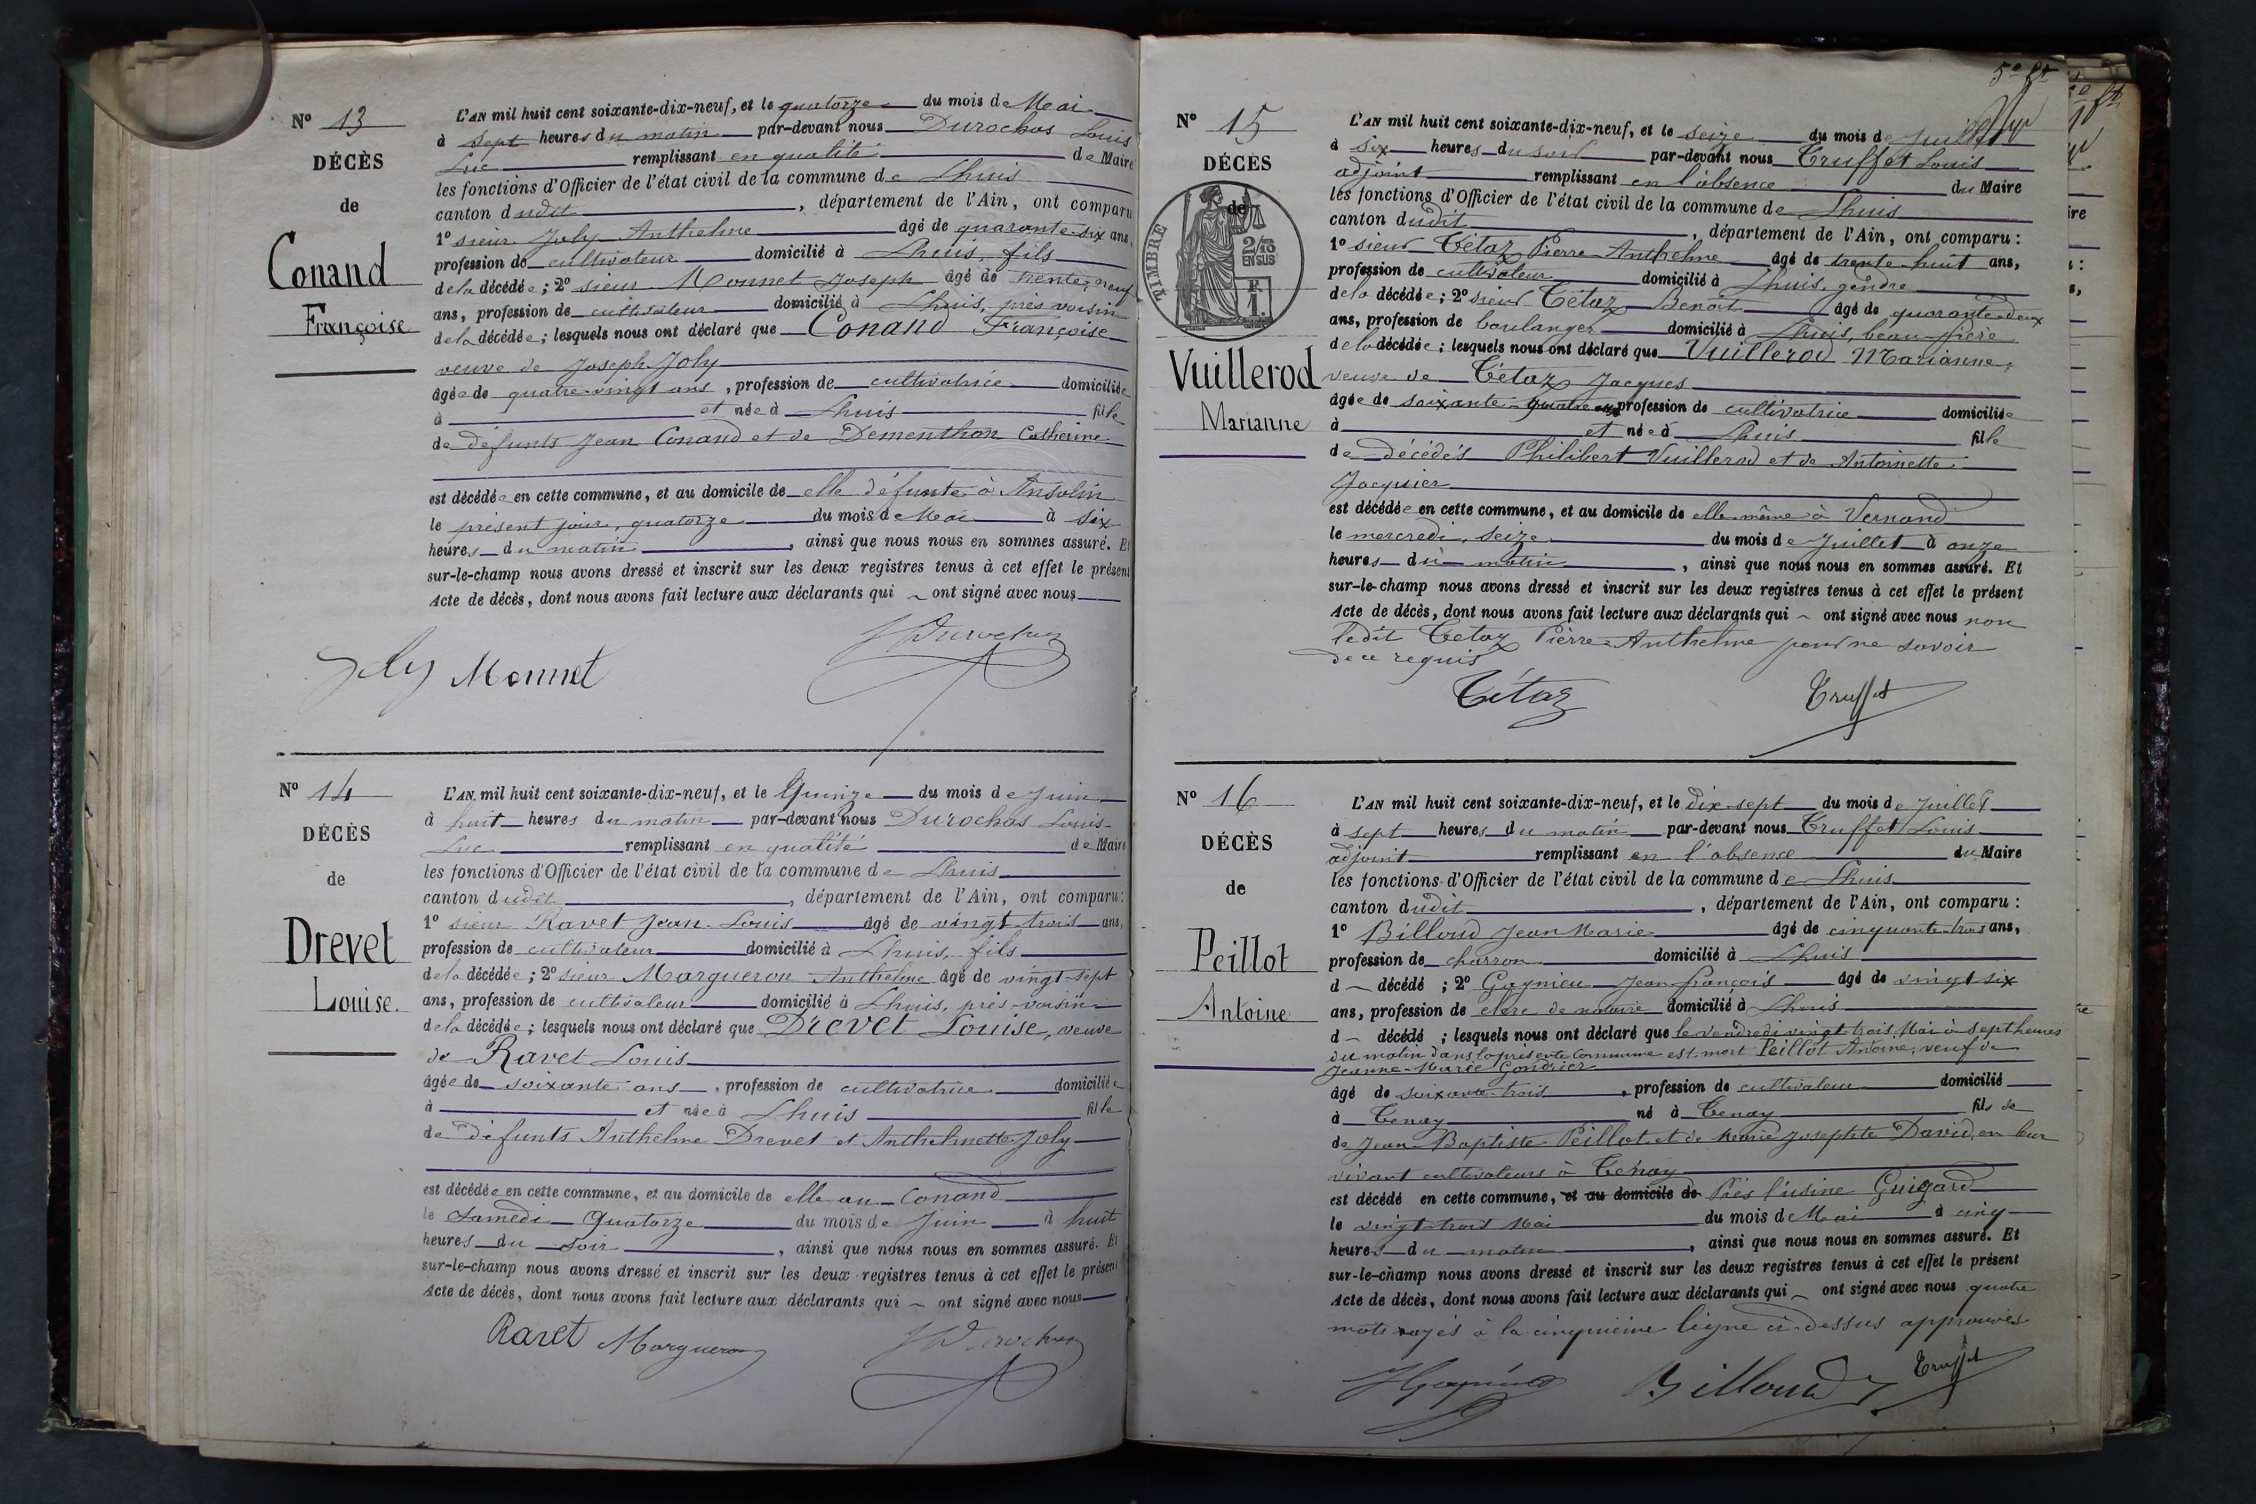 Nº 13
DÉCÈS
de
Conand
Françoise
L'AN mil huit cent soixante-dix-neuf, et le quatorze du mois de Mai
à sept heures du matin par-devant nous Durochas Louis
Luc remplissant en qualité de Maire
les fonctions d'Officier de l'état civil de la commune de Lhuis
canton dudit, département de l'Ain, ont comparu
1º sieur Joly Anthelme âgé de quarante-six ans,
profession de cultivateur domicilié à Lhuis, fils
de la décédée; 2º sieur Monnet Joseph âgé de trente-neuf
ans, profession de cultivateur domicilié à Lhuis, près voisin
de la décédée; lesquels nous ont déclaré que Conand Françoise
veuve de Joseph Joly
âgée de quatre-vingt ans, profession de cultivatrice domiciliée
à et née à Lhuis fille
de défunts Jean Conand et de Dementhon Catherine
est décédée en cette commune, et au domicile de elle défunte à Ansolin
le présent jour, quatorze du mois de Mai à six
heures du matin, ainsi que nous nous en sommes assuré. Et
sur-le-champ nous avons dressé et inscrit sur les deux registres tenus à cet effet le présent
Acte de décès, dont nous avons fait lecture aux déclarants qui ont signé avec nous
Joly Monnet Durochas
Nº 14
DÉCÈS
de
Drevet
Louise.
L'AN mil huit cent soixante-dix-neuf, et le Quinze du mois de Juin
à huit heures du matin par-devant nous Durochas Louis-
Luc remplissant en qualité de Maire
les fonctions d'Officier de l'état civil de la commune de Lhuis
canton dudit, département de l'Ain, ont comparu:
1º sieur Ravet Jean-Louis âgé de vingt-trois ans,
profession de cultivateur domicilié à Lhuis, fils
de la décédée; 2º sieur Margueron Anthelme âgé de vingt-sept
ans, profession de cultivateur domicilié à Lhuis, près-voisin
de la décédée; lesquels nous ont déclaré que Drevet Louise, veuve
de Ravet Louis
âgée de soixante ans, profession de cultivatrice domiciliée
à et née à Lhuis fille
de défunts Anthelme Drevet et Anthelmette Joly
est décédée en cette commune, et au domicile de elle au Conand
le Samedi Quatorze du mois de Juin à huit
heures du soir, ainsi que nous nous en sommes assuré. Et
sur-le-champ nous avons dressé et inscrit sur les deux registres tenus à cet effet le présent
Acte de décès, dont nous avons fait lecture aux déclarants qui ont signé avec nous
Ravet Margueron Durochas
Nº 15
DÉCÈS
de
TIMBRE
2/10
EN SUS
F.
1.
Vuillerod
Marianne
L'AN mil huit cent soixante-dix-neuf, et le seize du mois de Juillet
à six heures du soir par-devant nous Truffet Louis
adjoint remplissant en l'absence du Maire
les fonctions d'Officier de l'état civil de la commune de Lhuis
canton dudit, département de l'Ain, ont comparu:
1º sieur Tétaz Pierre-Anthelme âgé de trente-huit ans,
profession de cultivateur domicilié à Lhuis, gendre
de la décédée; 2º sieur Tétaz Benoît âgé de quarante-deux
ans, profession de boulanger domicilié à Lhuis, beau-frère
de la décédée; lesquels nous ont déclaré que Vuillerod Marianne,
veuve de Tétaz Jacques
âgée de soixante-quatre ans profession de cultivatrice domiciliée
à et née à Lhuis fille
de décédés Philibert Vuillerod et de Antoinette
Jacquier
est décédée en cette commune, et au domicile de elle même à Vernand
le mercredi, seize du mois de Juillet à onze
heures du matin, ainsi que nous nous en sommes assuré. Et
sur-le-champ nous avons dressé et inscrit sur les deux registres tenus à cet effet le présent
Acte de décès, dont nous avons fait lecture aux déclarants qui ont signé avec nous non
ledit Tetaz Pierre-Anthelme pour ne savoir
de ce requis
Tétaz Truffet
Nº 16
DÉCÈS
de
Peillot
Antoine
L'AN mil huit cent soixante-dix-neuf, et le dix-sept du mois de Juillet
à sept heures du matin par-devant nous Truffet Louis
adjoint remplissant en l'absence du Maire
les fonctions d'Officier de l'état civil de la commune de Lhuis
canton dudit, département de l'Ain, ont comparu:
1º Billoud Jean Marie âgé de cinquante-trois ans,
profession de charron domicilié à Lhuis
d décédé; 2º Guynieu Jean françois âgé de vingt-six
ans, profession de clerc de notaire domicilié à Lhuis
d décédé; lesquels nous ont déclaré que le vendredi vingt-trois Mai à sept heures
du matin dans la présente commune est mort Peillot Antoine, veuf de
Jeanne-Marie Gondrier
âgé de soixante-trois, profession de cultivateur domicilié
à Tenay né à Tenay fils de
de Jean Baptiste Peillot et de Marie Josephte David, en leur
vivant cultivateurs à Tenay
est décédé en cette commune, et au domicile de Près l'usine Guigard
le vingt-trois Mai du mois de Mai à cinq
heures du matin, ainsi que nous nous en sommes assuré. Et
sur-le-champ nous avons dressé et inscrit sur les deux registres tenus à cet effet le présent
Acte de décès, dont nous avons fait lecture aux déclarants qui ont signé avec nous quatre
mots rayés à la cinquième ligne ci-dessus approuvés
Billoud Truffet